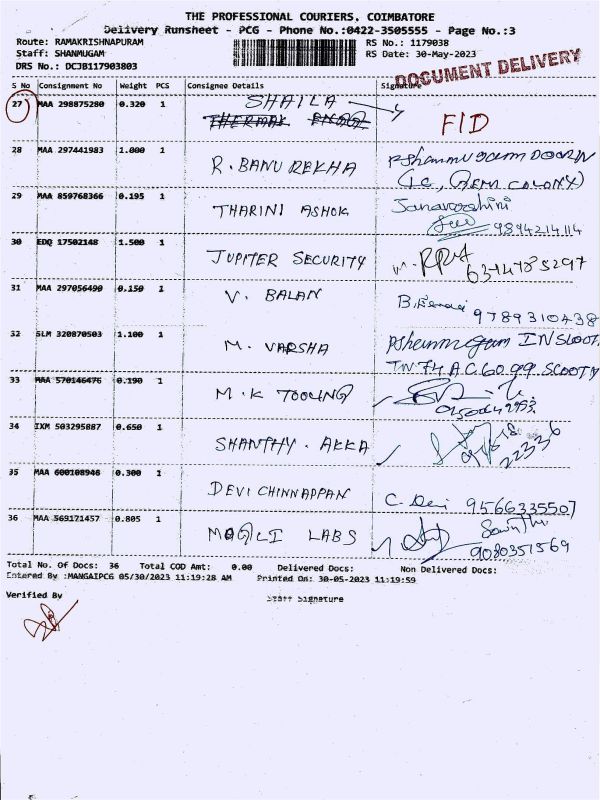 THE PROFESSIONAL COURIERS. COIMBATORE
Delivery Runsheet - PCG - Phone No.:0422-3505555 - Page No.:3
Route: RAMAKRISHNAPURAM RS No.: 1179038
Staff: SHANMUGAM RS Date: 30-May-2023
DRS No.: DCJB117903803
DOCUMENT DELIVERY
S No Consignment No Weight PCS Consignee Details Signature
27 MAA 298875280 0.320 1 SHAILA
THERMAX ENGG FID
28 MAA 297441983 1.000 1 R. BANU REKHA
29 MAA 859768366 0.195 1 THARINI ASHOK
9894214114
30 EDQ 17502148 1.500 1 JUPITER SECURITY
31 MAA 297056490 0.150 1 V. BALAN
9789310438
32 SLM 320870503 1.100 1 M. VARSHA
TN74 AC 6099 SCOOTY
33 MAA 570146476 0.190 1 M.K TOOLING
34 IXM 503295887 0.650 1 SHANTHY. AKKA
35 MAA 600108946 0.300 1 DEVI CHINNAPPAN C. Devi 9566335507
36 MAA 569171457 0.805 1 LABS
9080351569
Total No. Of Docs: 36 Total COD Amt: 0.00 Delivered Docs: Non Delivered Docs:
Entered By :MANGAIPCG 05/30/2023 11:19:28 AM Printed On: 30-05-2023 11:19:59
Verified By Staff Signature